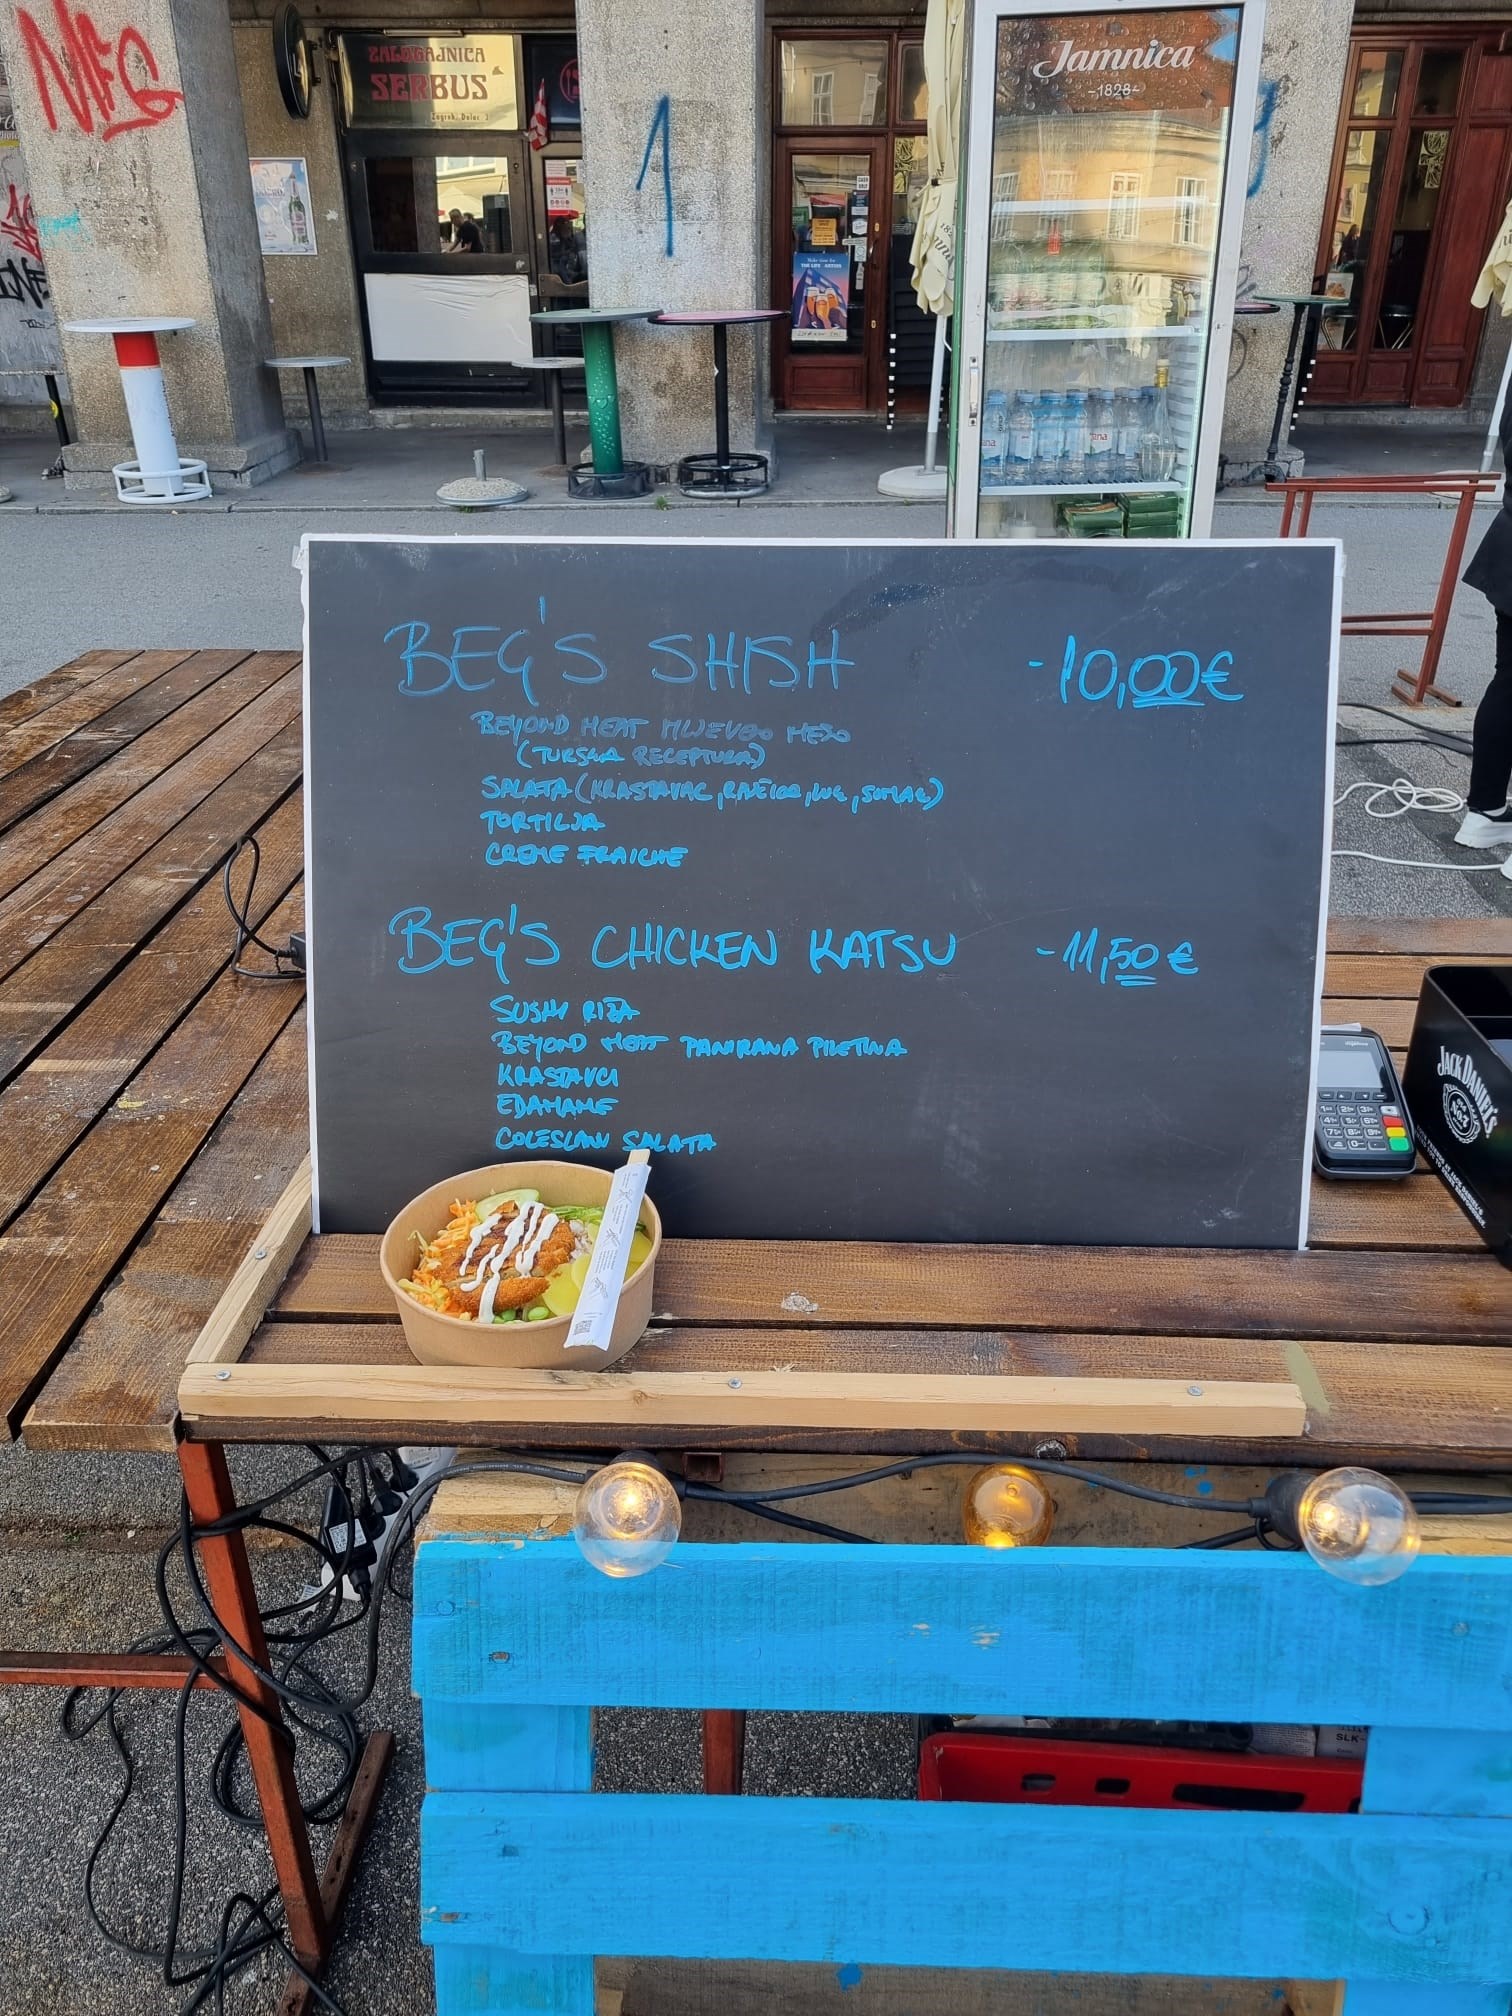 MFG
ZALOGAJNICA
SERBUS
Zagreb, Dolac 2
1
Jamnica
-1828-
BEG'S SHISH -10,00€
BEYOND MEAT MLJEVENO MESO
(TURSKA RECEPTURA)
SALATA (KRASTAVAC, RAJČICA, LUK, SUMAC)
TORTILJA
CREME FRAICHE
BEG'S CHICKEN KATSU -11,50€
SUSHI RIŽA
BEYOND MEAT PANIRANA PILETINA
KRASTAVCI
EDAMAME
COLESLAW SALATA
JACK DANIEL'S
OLD
No.7
SLK-